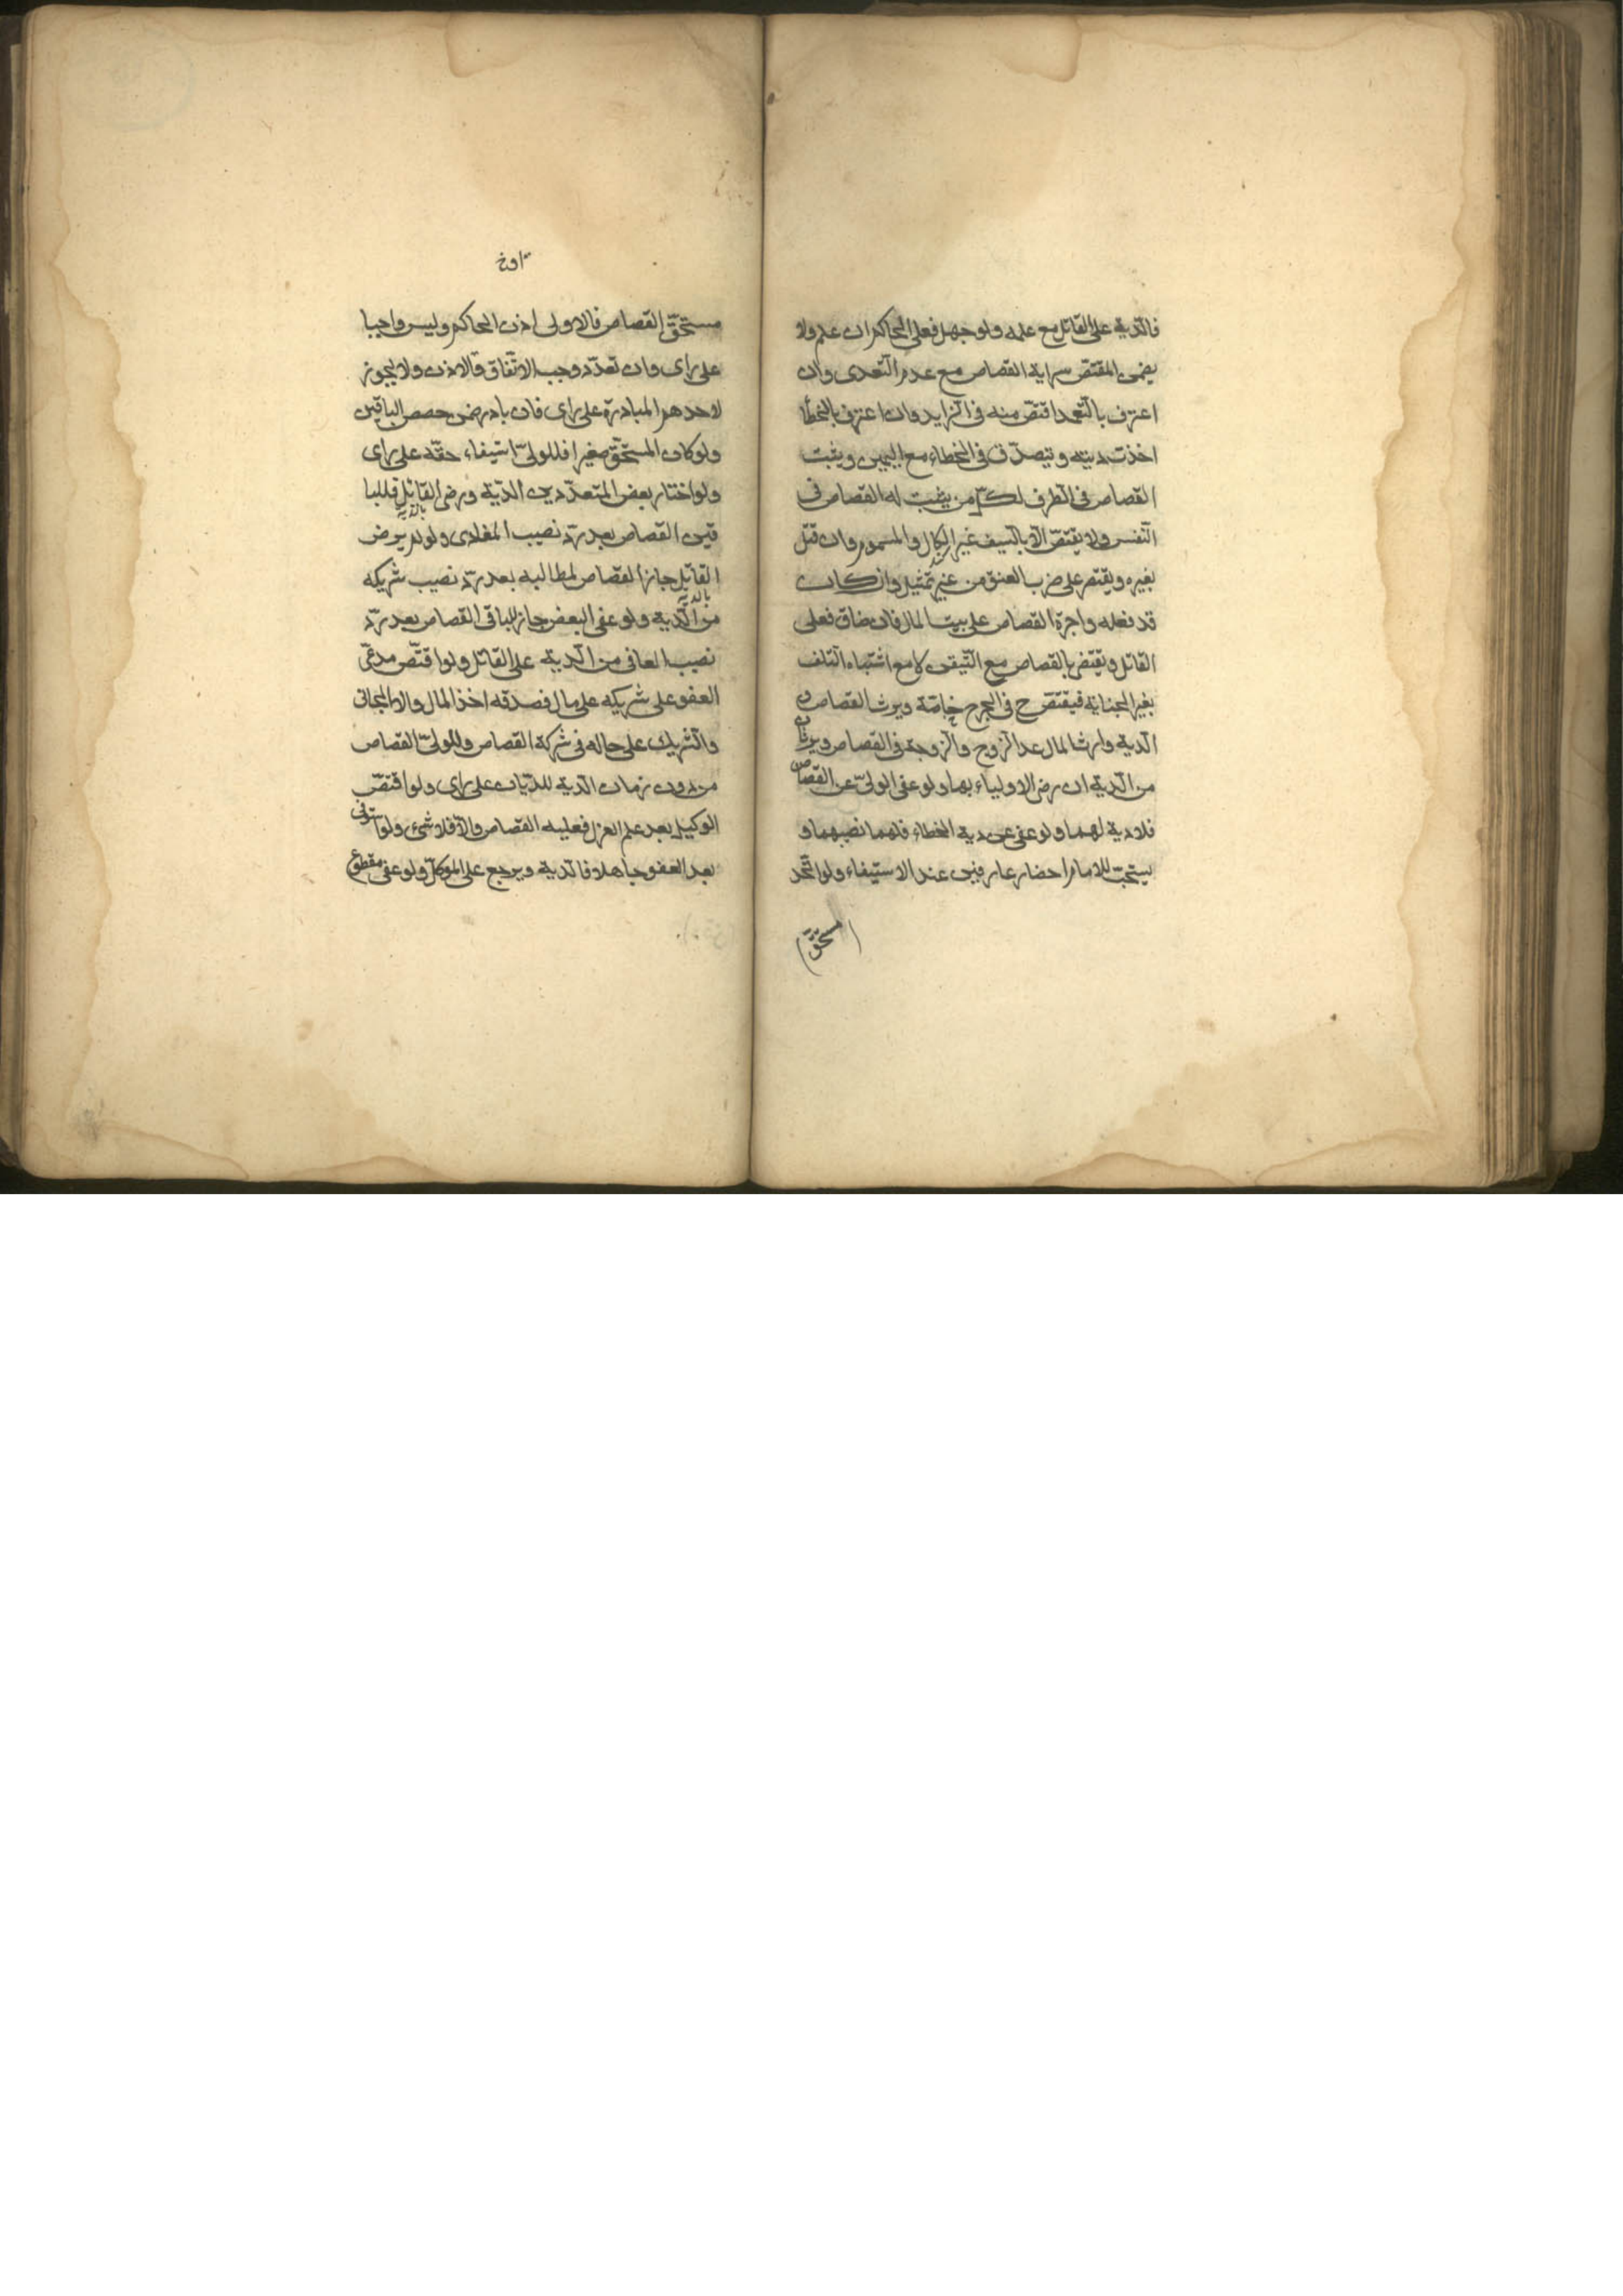 فالدّية على القاتل مع علمه ولو جهل فعلى الحاكم ان علم ولا
يضمن المقتصّ سراية القصاص مع عدم التّعدى وان
اعترف بالتّعمد اقتصّ منه فى الزايد وان اعترف بالخطأ
اخذت ديته ويتصدّق فى الخطاء مع اليمين ويثبت
القصاص فى الطرف لكلّ من يثبت له القصاص فى
النّفس ولا يقتصّ الّا بالسيف غير الكالّ والمسموم وان قتل
بغيره ويقتصر على ضرب العنق من غير تمثيل وان كان
قد فعله واجرة القصاص على بيت المال فان ضاق فعلى
القاتل ويقتصّ بالقصاص مع التّيقن لا مع اشتباه التلف
بغير الجناية فيقتصّ ح فى الجرح خاصّة ويرث القصاص و
الدّية وارث المال عدا الزوج والزوجة فى القصاص ويرثان
من الدّية ان رضى الاولياء بها ولو عفى الولىّ عن القصاص
فلا دية لهما ولو عفى عن دية الخطاء فلهما نصيبهما و
يستحبّ للامام احضار عارفين عند الاستيفاء ولو اتّحد
مستحقّ
مستحقّ القصاص فالاولى اذن الحاكم وليس واجبا
على راى وان تعدّد وجب الاتّفاق والاذن ولا يجوز
لاحدهم المبادرة على راى فان بادر ضمن حصص الباقين
ولو كان المستحقّ صغيرا فللولىّ استيفاء حقّه على راى
ولو اختار بعض المتعدّدين الدّية ورضى القاتل فللبا
بالدية
قين القصاص بعد ردّ نصيب المفادى ولو لم يرض
القاتل جاز القصاص لمطالبه بعد ردّ نصيب شريكه
بالدية
من الدّية ولو عفى البعض جاز للباقى القصاص بعد ردّ
نصيب العافى من الدّية على القاتل ولو اقتصّ مدعى
العفو على شريكه على مال فصدقه اخذ المال والا المجانى
والشريك على حاله فى شركة القصاص وللولىّ القصاص
من دون ضمان الدية للديّان على راى ولو اقتصّ
الوكيل بعد علم العزل فعليه القصاص والّا فلا شئ ولو استوفى
بعد العفو جاهلا فالدية ويرجع على الموكل ولو عفى مقطوع